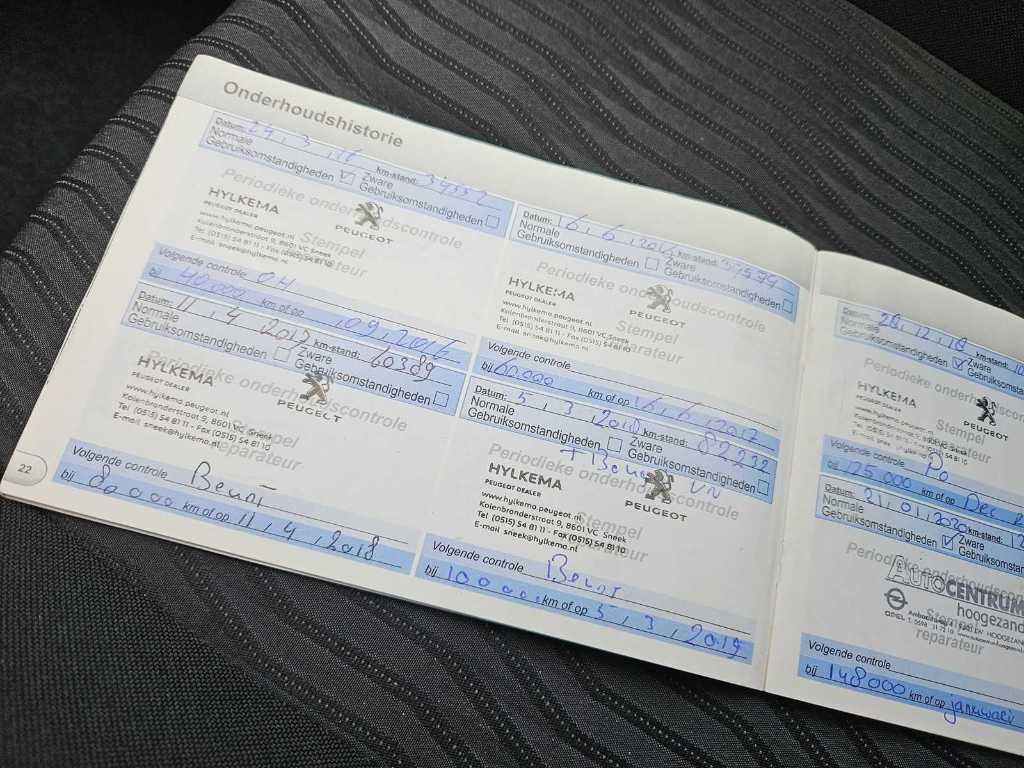 Onderhoudshistorie
Datum: 24, 3, 16 km-stand:
Normale Gebruiksomstandigheden Zware Gebruiksomstandigheden
Periodieke onderhoudscontrole
HYLKEMA
PEUGEOT DEALER
PEUGEOT
www.hylkema.peugeot.nl
Kolenbranderstraat 9, 8601 VC Sneek
Tel (0515) 54 81 11 - Fax (0515) 54 81 10
E-mail sneek@hylkema.nl
Stempel
reparateur
Volgende controle OH
bij 40.000 km of op
Datum: 11, 4 2017 km-stand: 60389
Normale Gebruiksomstandigheden Zware Gebruiksomstandigheden
Periodieke onderhoudscontrole
HYLKEMA
PEUGEOT DEALER
PEUGEOT
www.hylkema.peugeot.nl
Kolenbranderstraat 9, 8601 VC Sneek
Tel (0515) 54 81 11 - Fax (0515) 54 81 10
E-mail sneek@hylkema.nl
Stempel
reparateur
Volgende controle Beurt
bij 80000 km of op 11, 4, 2018
22
Datum: 16, 6, 2016 km-stand:
Normale Gebruiksomstandigheden Zware Gebruiksomstandigheden
Periodieke onderhoudscontrole
HYLKEMA
PEUGEOT DEALER
PEUGEOT
www.hylkema.peugeot.nl
Kolenbranderstraat 9, 8601 VC Sneek
Tel (0515) 54 81 11 - Fax (0515) 54 81 10
E-mail sneek@hylkema.nl
Stempel
reparateur
Volgende controle
bij 60.000 km of op 16, 6, 2017
Datum: 5, 3, 2018 km-stand: 82232
Normale Gebruiksomstandigheden Zware Gebruiksomstandigheden
Periodieke onderhoudscontrole
HYLKEMA
PEUGEOT DEALER
PEUGEOT
www.hylkema.peugeot.nl
Kolenbranderstraat 9, 8601 VC Sneek
Tel (0515) 54 81 11 - Fax (0515) 54 81 10
E-mail sneek@hylkema.nl
Stempel
reparateur
Volgende controle Beurt
bij 100000 km of op 5, 3, 2019
Datum: 28, 12, 18 km-stand:
Normale Gebruiksomstandigheden Zware Gebruiksomstandigheden
Periodieke onderhoudscontrole
HYLKEMA
PEUGEOT DEALER
PEUGEOT
Stempel
reparateur
Volgende controle
bij 125000 km of op Dec
Datum: 21, 01, 2020 km-stand:
Normale Gebruiksomstandigheden Zware Gebruiksomstandigheden
Periodieke onderhoudscontrole
AUTOCENTRUM
hoogezand
OPEL
Stempel
reparateur
Volgende controle
bij 148000 km of op januari